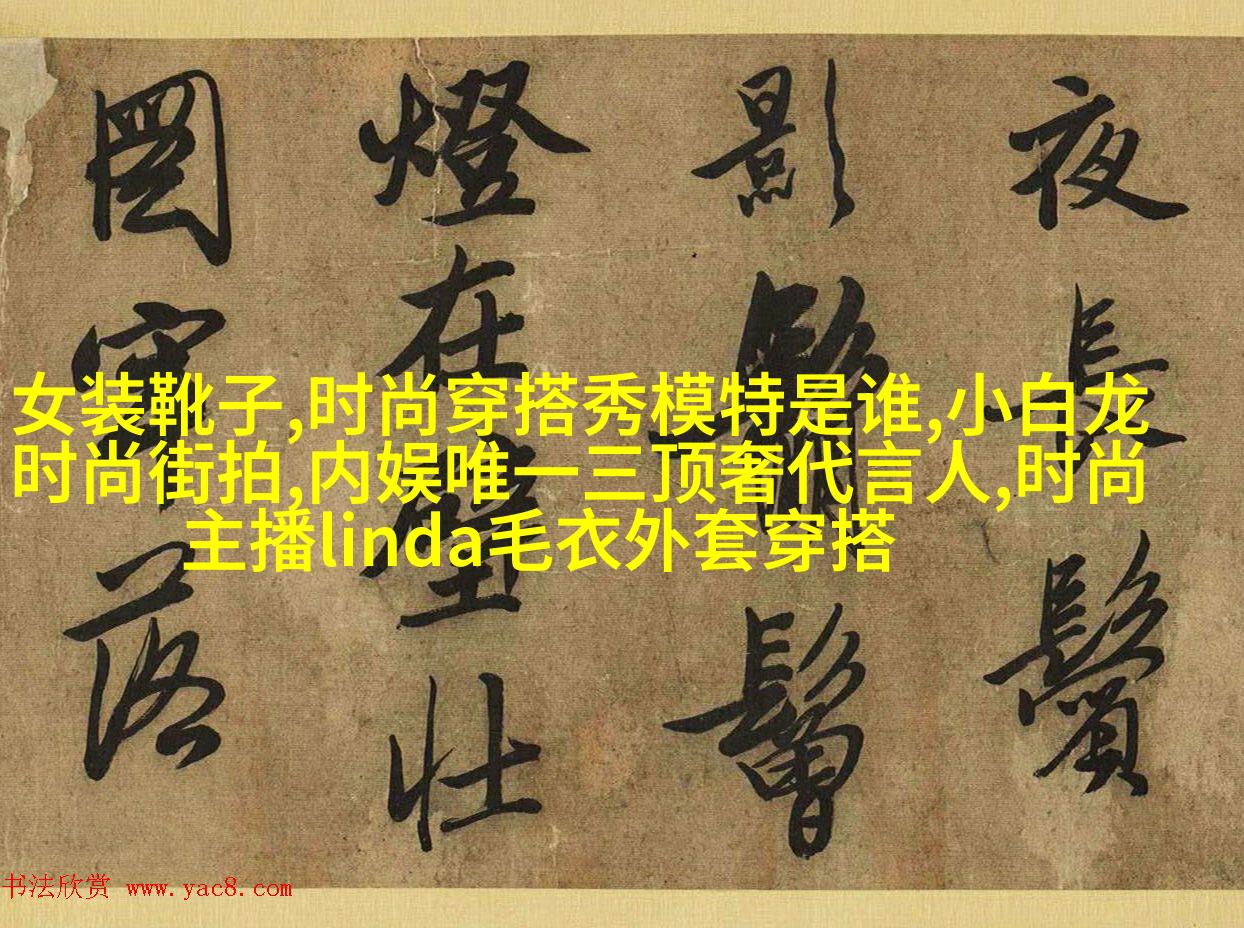 夜長鬢
影鬅鬙
燈在壁壯
圖牢落
女装靴子,时尚穿搭秀模特是谁,小白龙
时尚街拍,内娱唯一三顶奢代言人,时尚
主播linda毛衣外套穿搭
书法欣赏 www.yac8.com